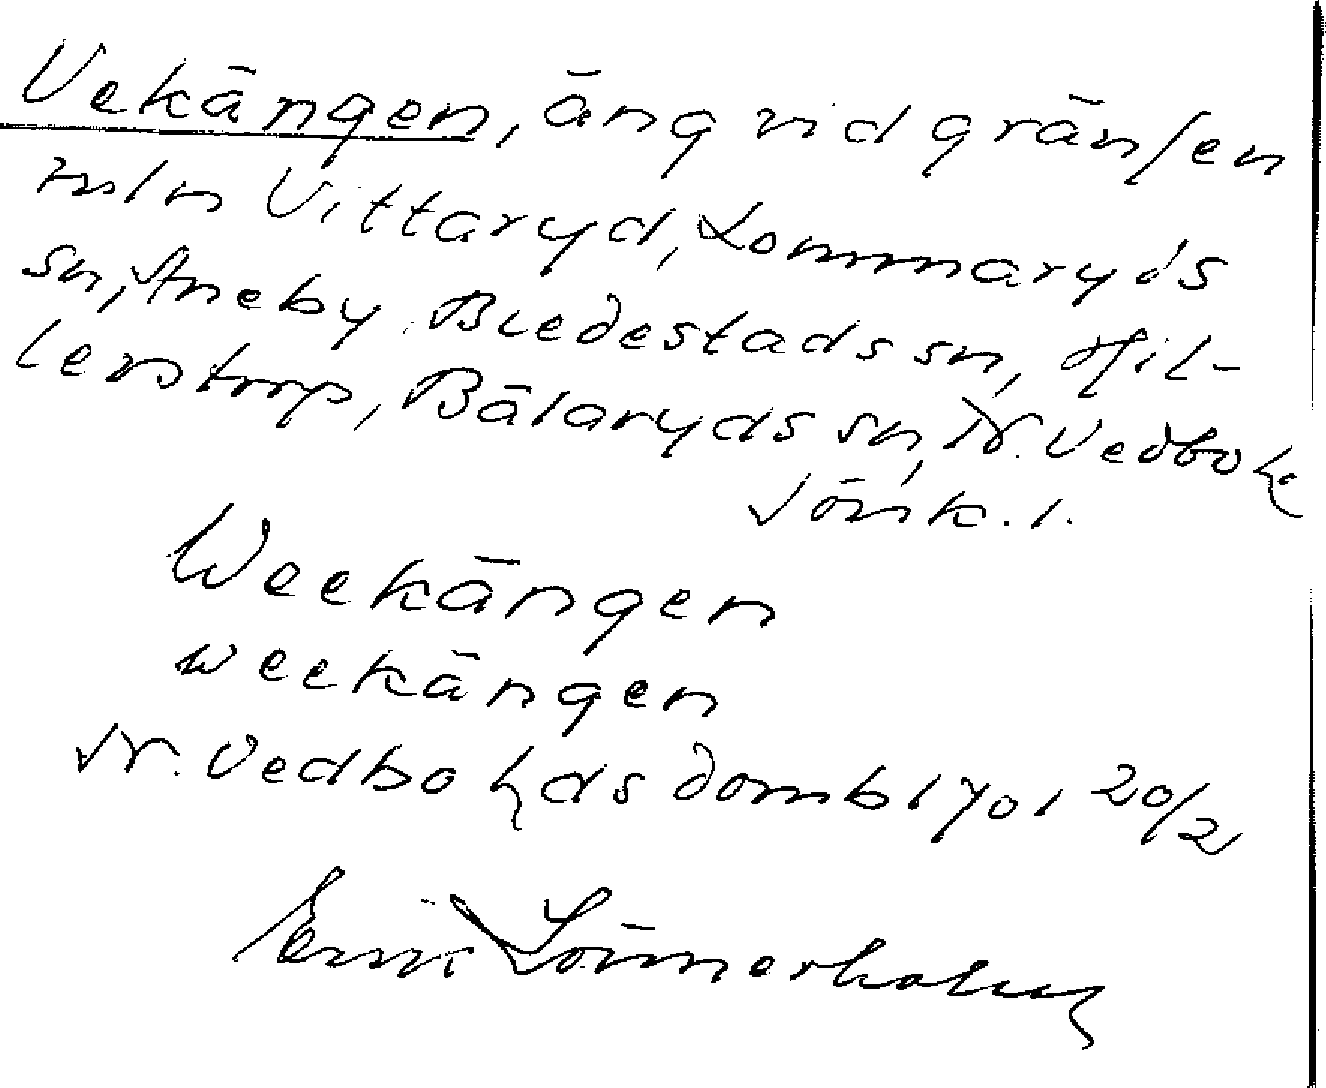 Vekängen, äng vid gränsen
mln Vittaryd, Lommaryds
sn, Aneby, Bredestads sn, Hil-
lerstorp, Bälaryds sn, N. Vedbo h
Jönk. l.
Weekängen
weekängen
N. Vedbo hds domb 1701 20/2
Erik Lönnerholm